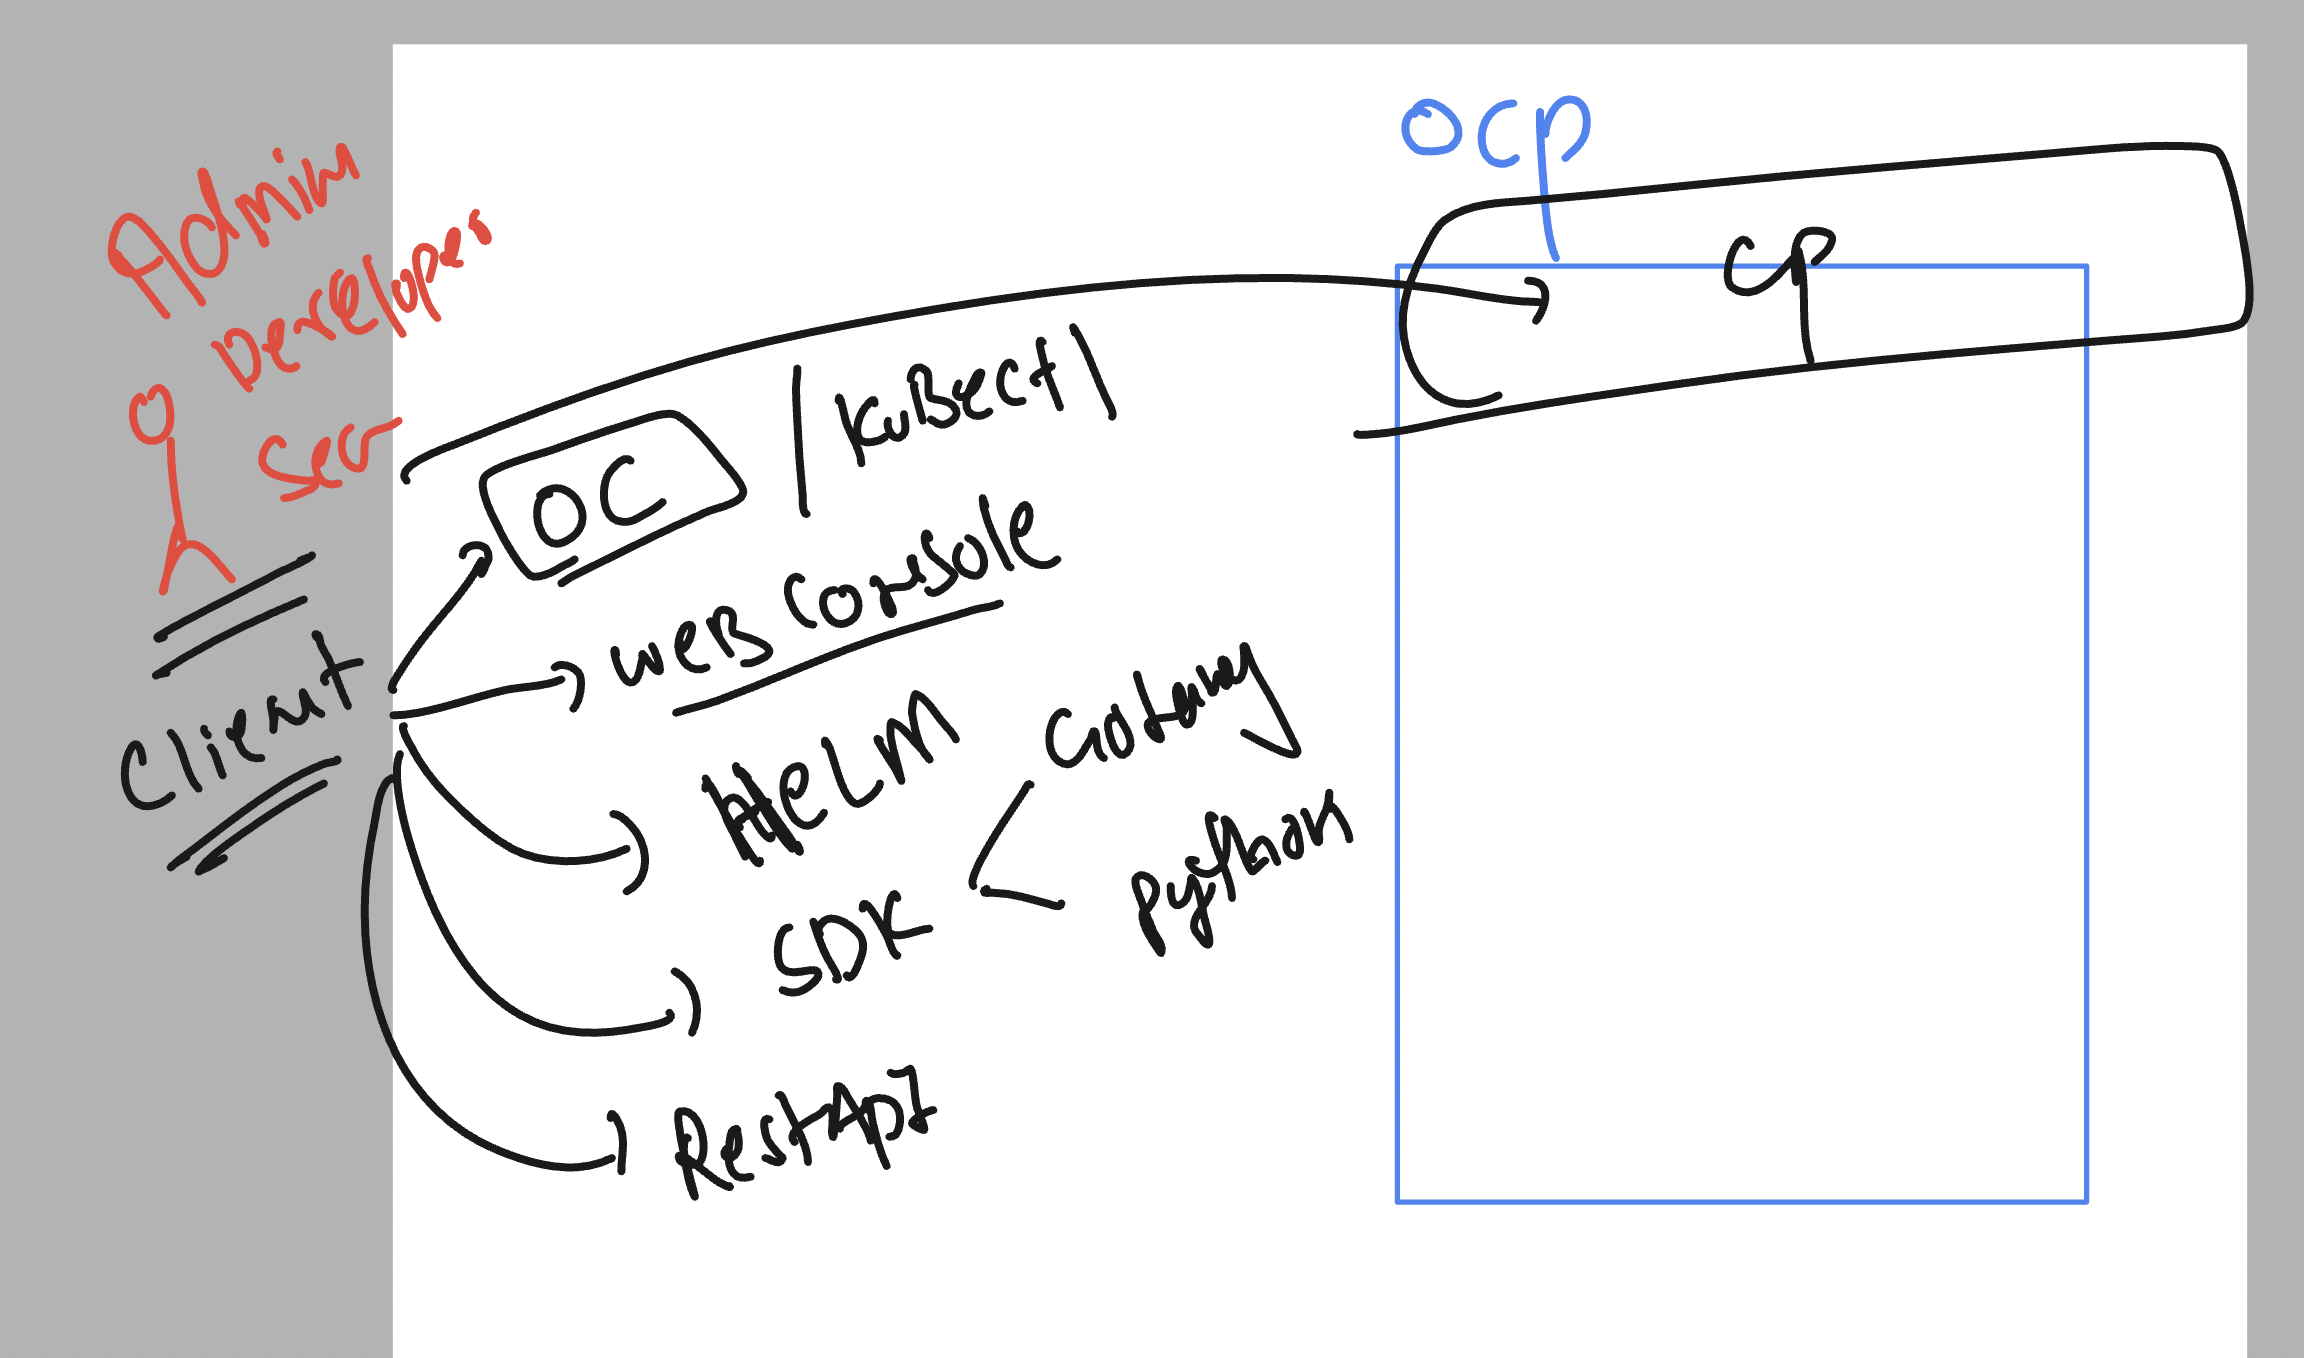 Admin
Developer
Sec
Client
OC | Kubectl
Web Console
HELM
SDK
Golang
Python
RestApI
OCP
CP